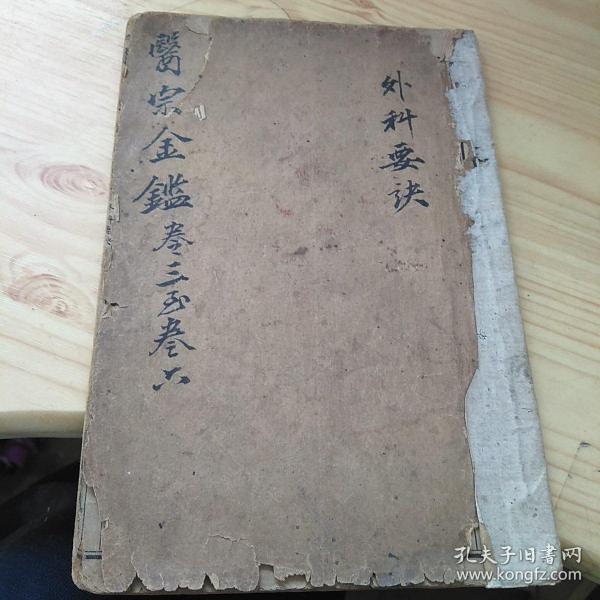 外科要诀
醫宗金鑑卷三至卷六
孔夫子旧书网
www.kongfz.com